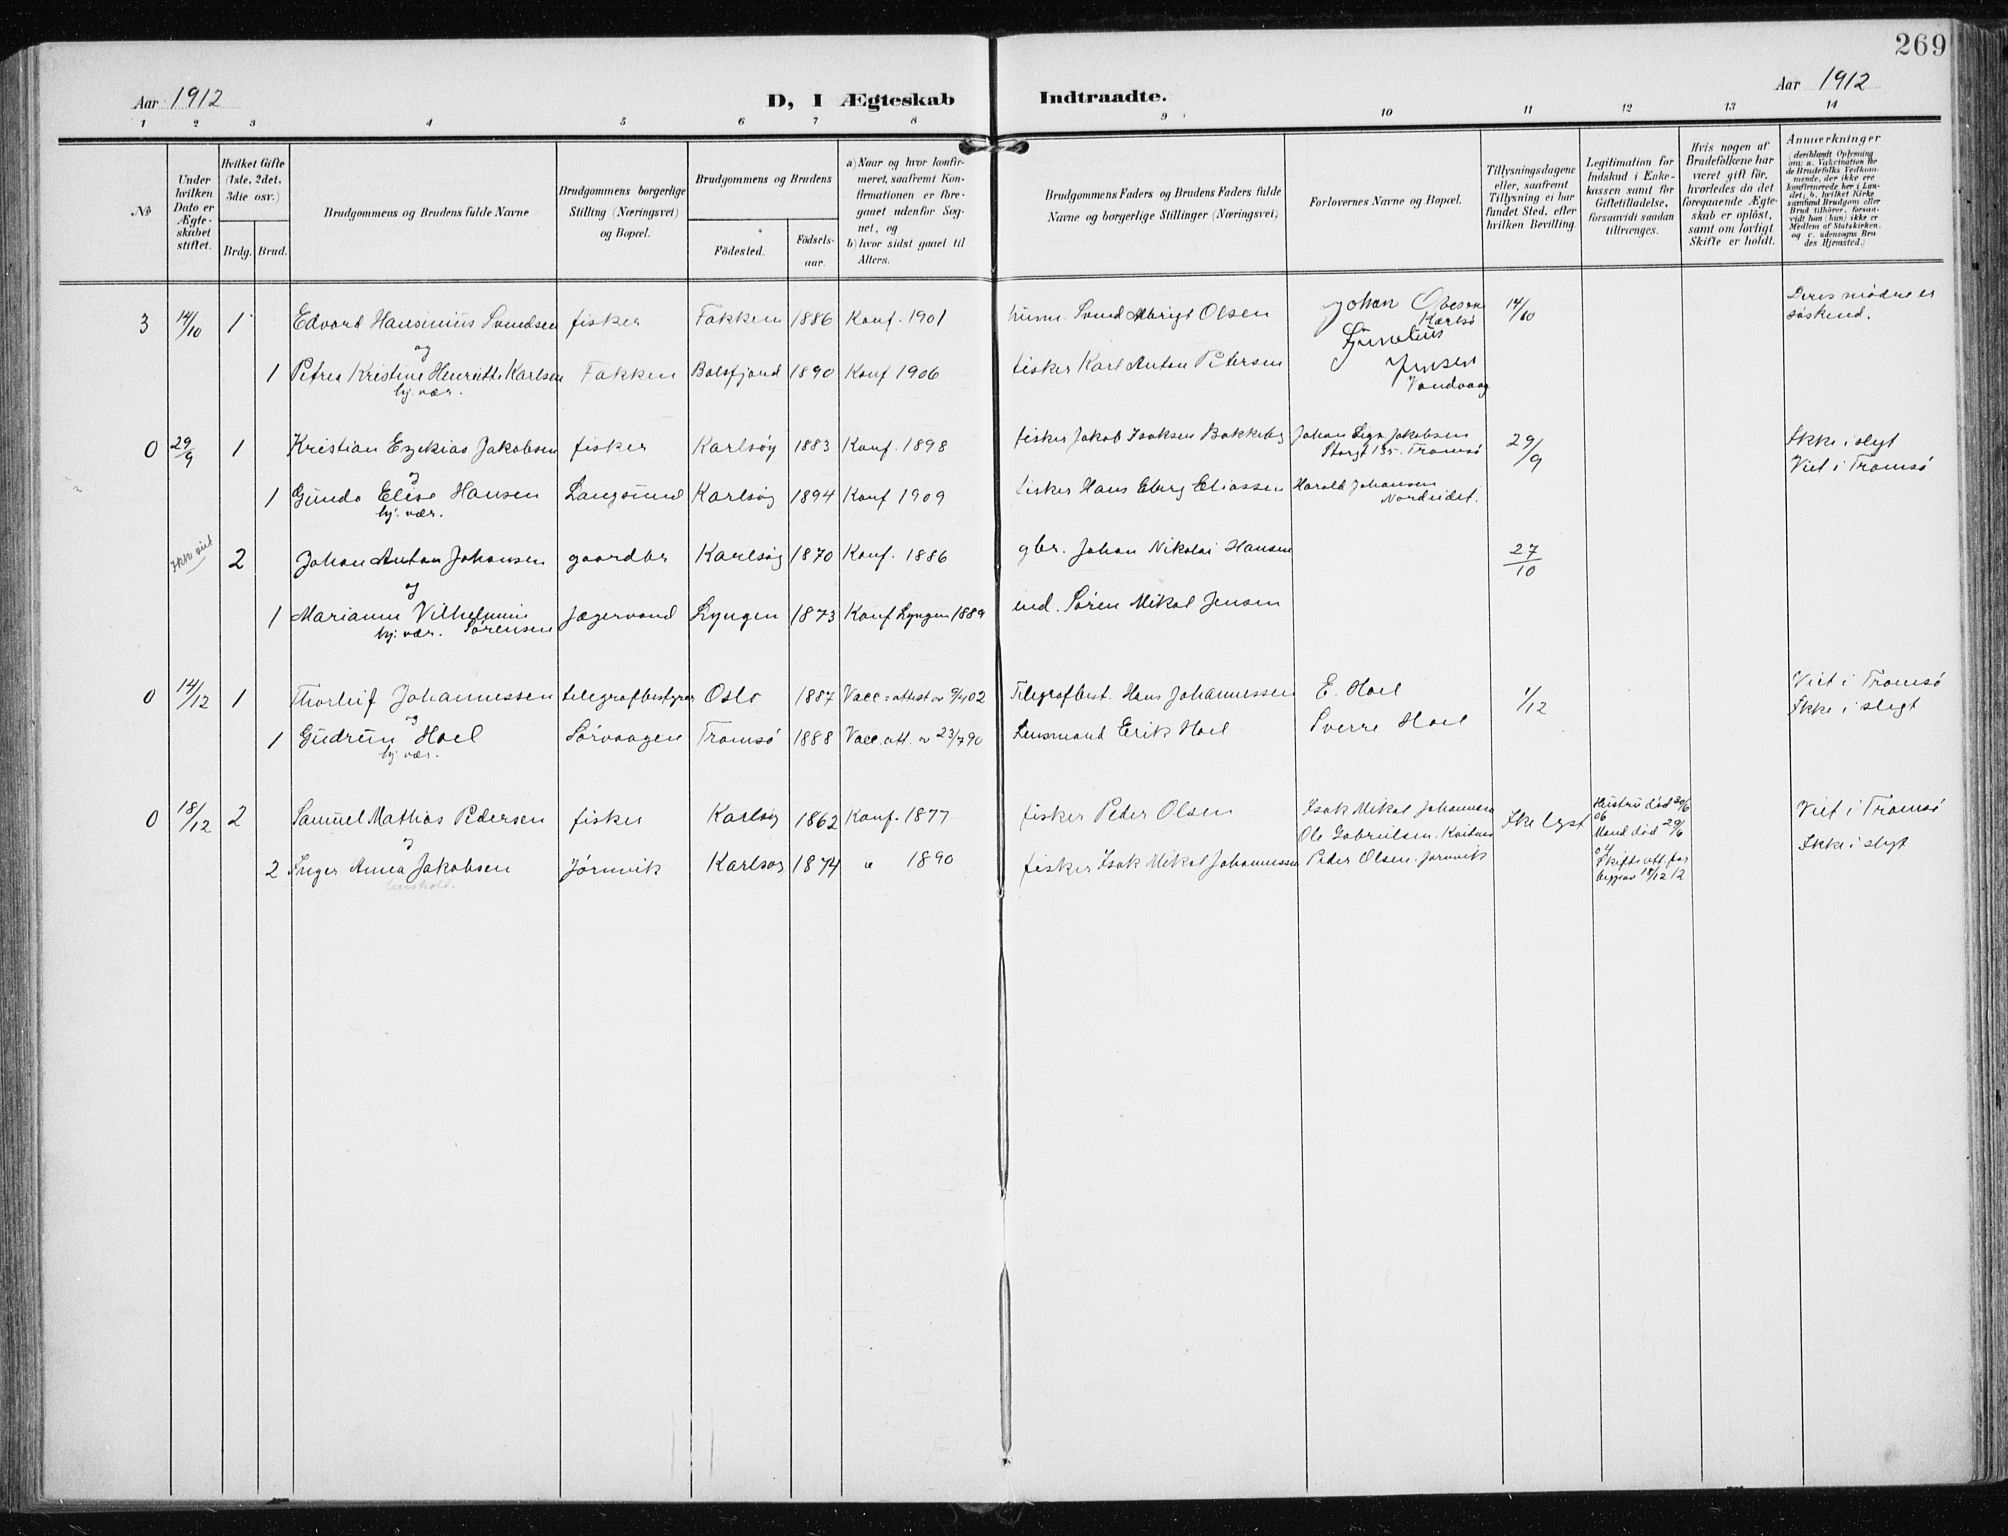 269
Aar 1912
D, I Ægteskab Indtraadte.
Aar 1912
1 2 3 4 5 6 7 8 9 10 11 12 13 14
No
Under hvilken Dato er Ægteskabet stiftet.
Hvilket Gifte (1ste, 2det, 3die osv.)
Brdg. Brud.
Brudgommens og Brudens fulde Navne
Brudgommens borgerlige Stilling (Næringsvei) og Bopæl.
Brudgommens og Brudens
Fødested.
Fødselsaar.
a) Naar og hvor konfirmeret, saafremt Konfirmationen er foregaaet udenfor Sognet, og
b) hvor sidst gaaet til Alters.
Brudgommens Faders og Brudens Faders fulde Navne og borgerlige Stillinger (Næringsvei)
Forlovernes Navne og Bopæl.
Tillysningsdagene eller, saafremt Tillysning ei har fundet Sted, efter hvilken Bevilling.
Legitimation for Indskud i Enkekassen samt for Giftetilladelse, forsaavidt saadan tiltrænges.
Hvis nogen af Brudefolkene har været gift før, hvorledes da det foregaaende Ægteskab er opløst, samt om lovligt Skifte er holdt.
Anmærkninger
(deriblandt Oplysning om: a. Vakcination for de Brudefolks Vedkommende, der ikke ere konfirmerede her i Landet; b. hvilket Kirkesamfund Brudgom eller Brud tilhører, forsaavidt han (hun) ikke er Medlem af Statskirken, og c. udensogns Brudes Hjemsted.)
3 14/10 1 Edvard Hansinius Svendsen fisker Fakken 1886 Konf. 1901 husm. Svend Albrigt Olsen Johan Karlsø 14/10 Deres mødre er søskend.
og
1 Petrea Kristine Henriette Karlsen Fakken Balsfjord 1890 Konf 1906 fisker Karl Anton Petersen Jensen Vandvaag
hj. vær.
0 29/9 1 Kristian Ezekias Jakobsen fisker Karlsøy 1883 Konf. 1898 fisker Jakob Isaksen Bakkeby Johan Sign. Jakobsen Storgt 135. Tromsø 29/9 Ikke i slegt
og Viet i Tromsø
1 Gunda Elise Hansen Langsund Karlsøy 1894 Konf 1909 fisker Hans Eberg Eliassen Harald Johansen Nordeidet.
hj. vær.
Ikke viet 2 Johan Anton Johansen gaardbr Karlsøy 1870 Konf. 1886 gbr. Johan Nikolai Hansen 27/10
og
1 Mariann Vilhelmine Sørensen Jægervand Lyngen 1873 Konf Lyngen 1889 ind. Søren Mikal Jensen
hj. vær.
0 14/12 1 Thorleif Johannessen telegrafbestyrer Oslo 1887 Vacc=attest av 9/4 02 Telegrafbest. Hans Johannessen E. Hoel 1/12 Viet i Tromsø
og Ikke i slegt
1 Gudrun Hoel Sørvaagen Tromsø 1888 Vacc. att. av 23/7 90 Lensmand Erik Hoel Sverre Hoel
hj. vær.
0 18/12 2 Samuel Mathias Pedersen fisker Karlsøy 1862 Konf. 1877 fisker Peder Olsen Isak Mikal Johannesen Ikke lyst Hustru død 20/6 06 Viet i Tromsø
og Ole Gabrielsen. Mand død 29/6 04 Ikke i slegt
2 Inger Anna Jakobsen Jørnvik Karlsøy 1874 " 1890 fisker Isak Mikal Johannessen Peder Olsen. Jørnvik Skifteatt. for begge av 18/12 12